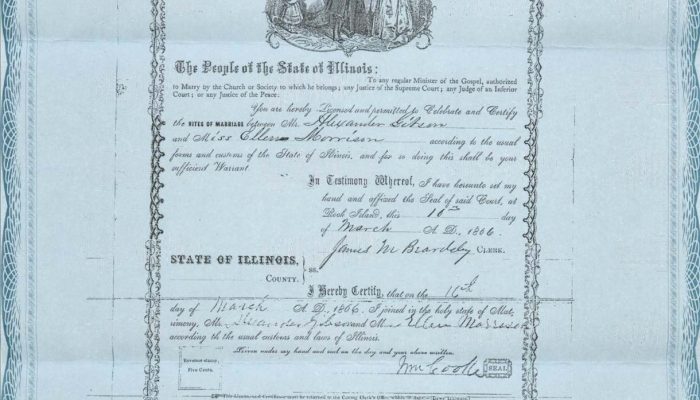 The People of the State of Illinois:
To any regular Minister of the Gospel, authorized
to Marry by the Church or Society to which he belongs; any Justice of the Supreme Court; any Judge of an Inferior
Court; or any Justice of the Peace:
You are hereby Licensed and permitted to Celebrate and Certify
the RITES OF MARRIAGE between Mr. Alexander Gibson
and Miss Ellen Morrison according to the usual
forms and customs of the State of Illinois, and for so doing this shall be your
sufficient Warrant.
In Testimony Whereof, I have hereunto set my
hand and affixed the Seal of said Court, at
Rock Island, this 16th day
of March A. D. 1866.
James M Beardsley CLERK.
STATE OF ILLINOIS, ss.
COUNTY.
I Hereby Certify, that on the 16th
day of March A. D. 1866. I joined in the holy state of Mat-
rimony, Mr. Alexander Gibson and Miss Ellen Morrison
according to the usual customs and laws of Illinois.
Given under my hand and seal on the day and year above written.
Revenue stamp,
Five Cents.
Wm Cooke SEAL